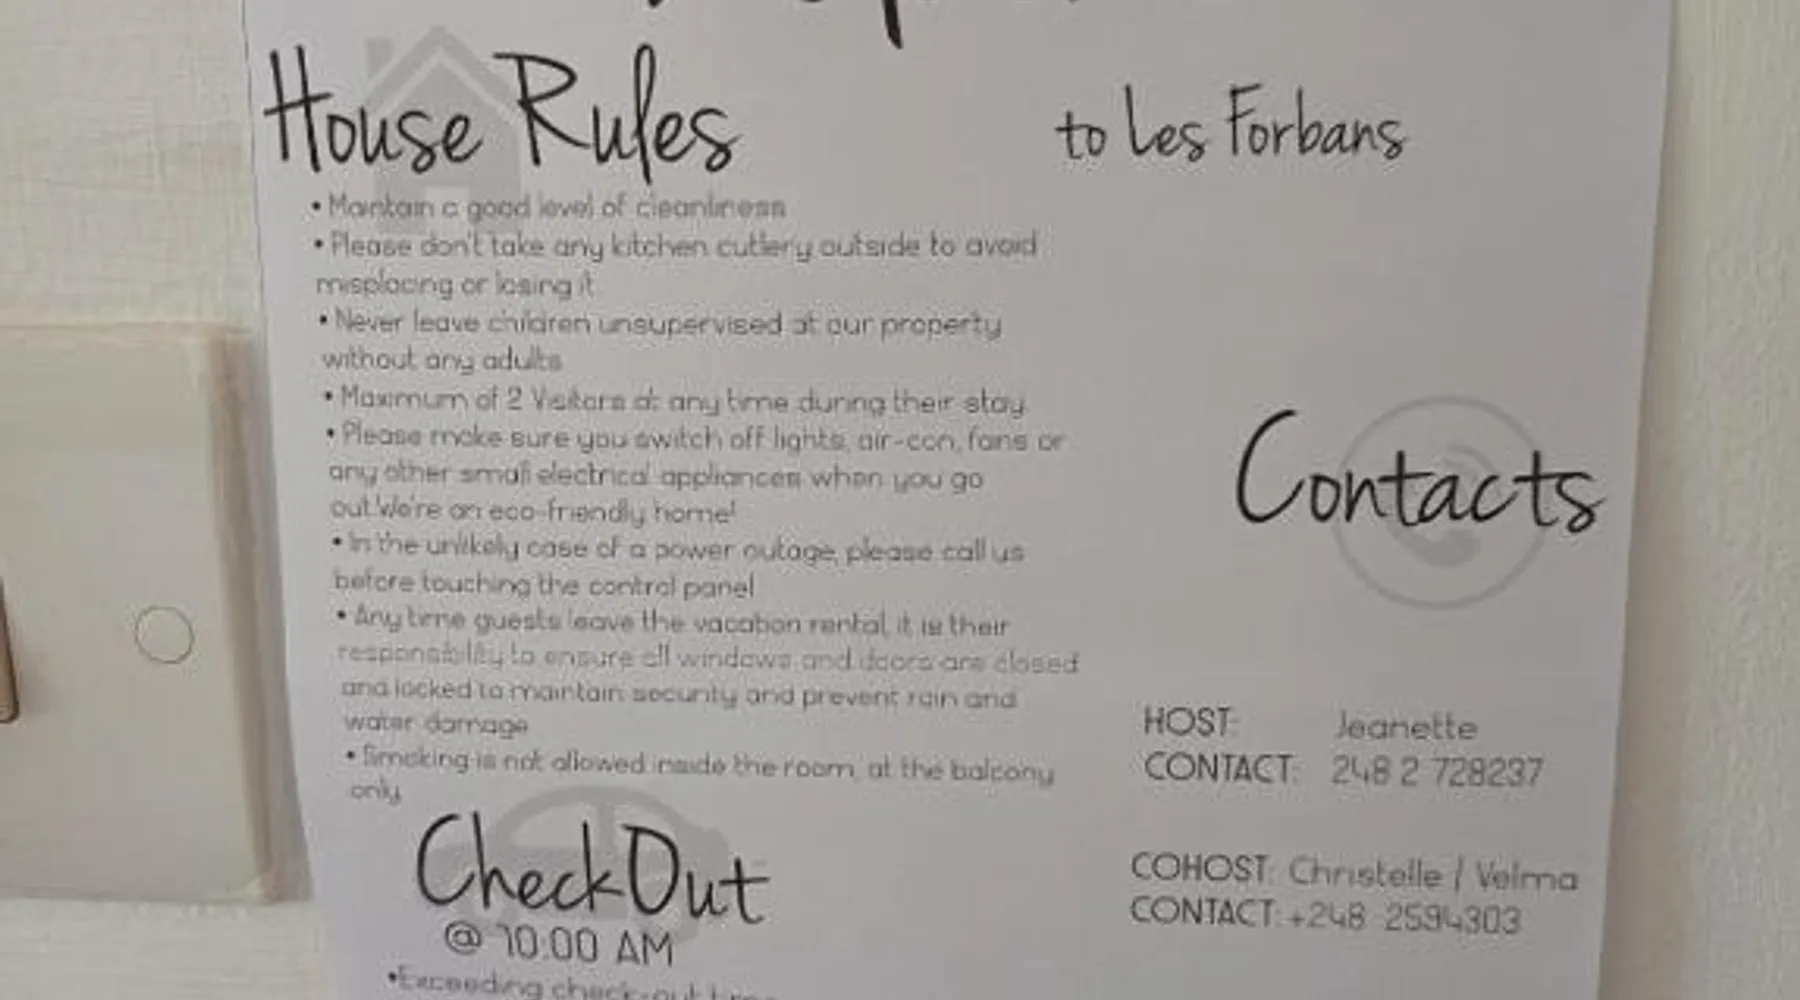 House Rules
to Les Forbans
• Maintain a good level of cleanliness
• Please don't take any kitchen cutlery outside to avoid
misplacing or losing it
• Never leave children unsupervised at our property
without any adults
• Maximum of 2 Visitors at any time during their stay
• Please make sure you switch off lights, air-con, fans or
any other small electrical appliances when you go
out. We're an eco-friendly home!
• In the unlikely case of a power outage, please call us
before touching the control panel
• Any time guests leave the vacation rental, it is their
responsibility to ensure all windows and doors are closed
and locked to maintain security and prevent rain and
water damage
• Smoking is not allowed inside the room, at the balcony
only
Contacts
HOST: Jeanette
CONTACT: 248 2 728237
COHOST: Christelle / Velma
CONTACT: +248 2594303
CheckOut
@ 10:00 AM
•Exceeding check-out time